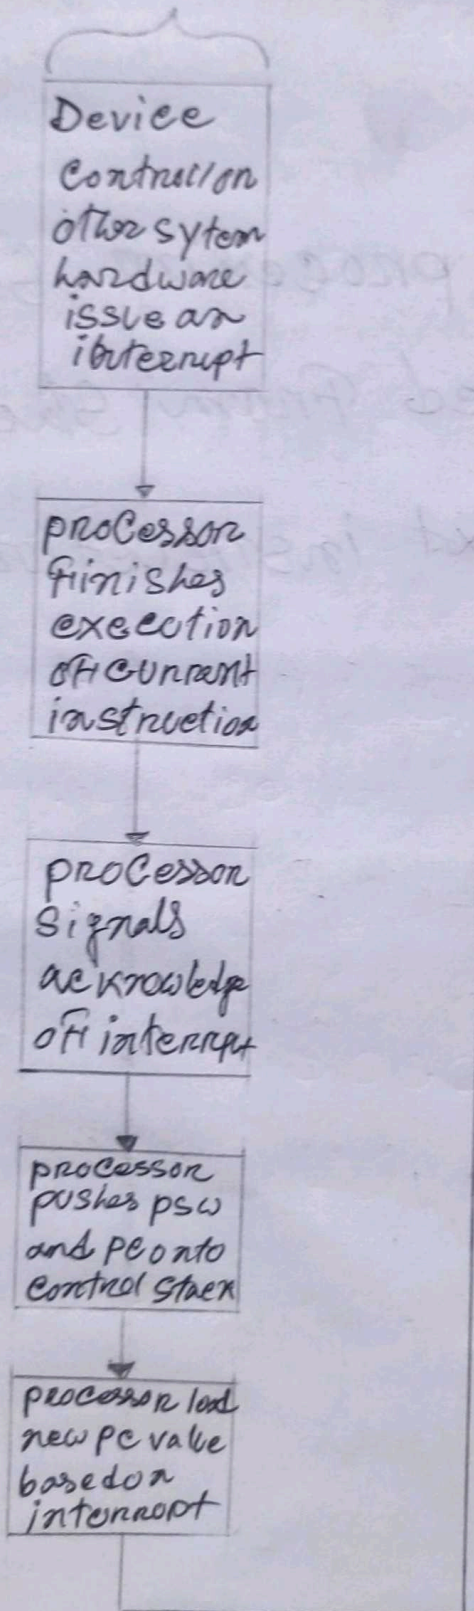 Device
Controll on
other sytem
hardware
issue an
interrupt
processor
finishes
execution
of current
instruction
processor
signals
acknowledge
of interrupt
processor
pushes psw
and PC onto
control stack
processor load
new pc value
based on
interrupt